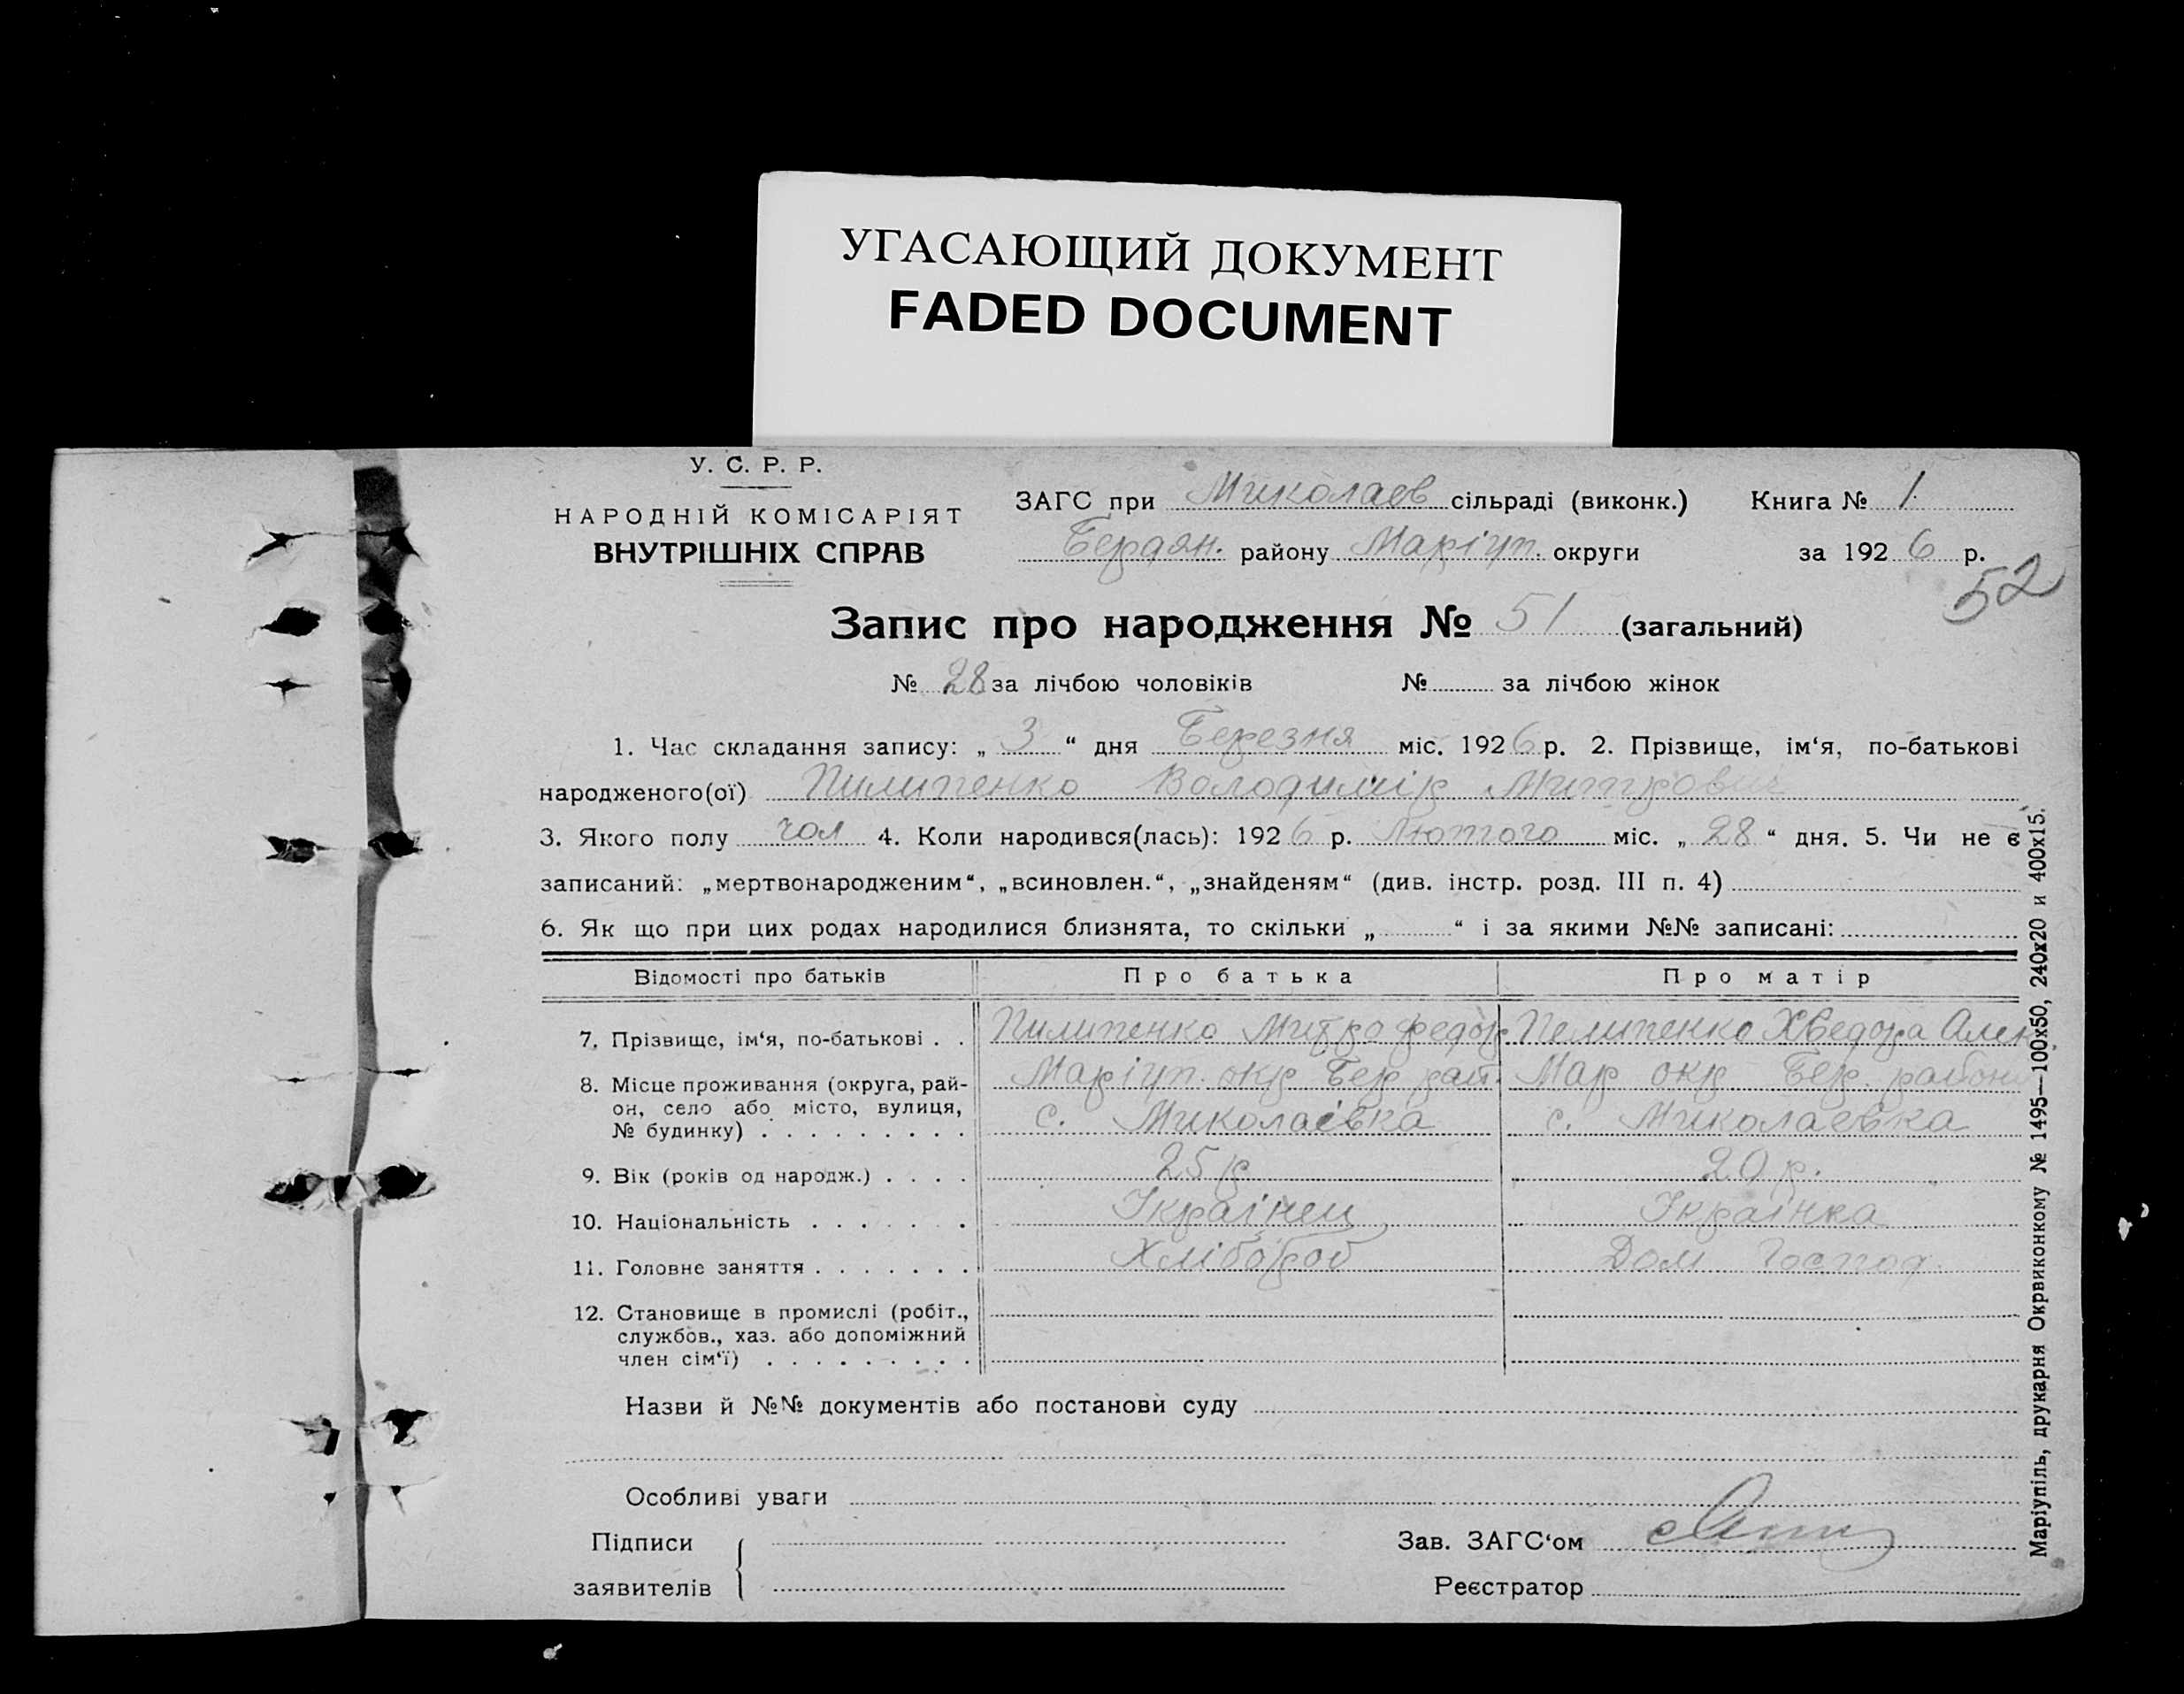 УГАСАЮЩИЙ ДОКУМЕНТ
FADED DOCUMENT
У. С. Р. Р.
НАРОДНІЙ КОМІСАРІЯТ
ВНУТРІШНІХ СПРАВ
ЗАГС при Миколаев сільраді (виконк.) Книга № 1
Бердян. району Маріуп. округи за 1926 р.
52
Запис про народження № 51 (загальний)
№ 28 за лічбою чоловіків № за лічбою жінок
1. Час складання запису: „ 3 “ дня Березня міс. 1926 р. 2. Прізвище, ім‘я, по-батькові
народженого(ої) Пилипенко Володимір Митрович
3. Якого полу чол 4. Коли народився(лась): 1926 р. Лютого міс. „ 28 “ дня. 5. Чи не є
записаний: „мертвонародженим“, „всиновлен.“, „знайденям“ (див. інстр. розд. III п. 4)
6. Як що при цих родах народилися близнята, то скільки „ “ і за якими №№ записані:
Відомості про батьків Про батька Про матір
7. Прізвище, ім‘я, по-батькові . . Пилипенко Митро Федор Пелипенко Хведора Алек
8. Місце проживання (округа, рай- Маріуп. окр Бер рай. Мар окр Бер. района
он, село або місто, вулиця, с. Миколаівка с. Миколаевка
№ будинку) . . . . . . . . .
9. Вік (років од народж.) . . . . 25 р 20 р.
10. Національність . . . . . . . Українец Українка
11. Головне заняття . . . . . . . Хлібороб Дом Господ.
12. Становище в промислі (робіт.,
службов., хаз. або допоміжний
член сім‘ї) . . . . . . . . .
Назви й №№ документів або постанови суду
Особливі уваги
Підписи
заявителів
Зав. ЗАГС‘ом
Реєстратор
Маріупіль, друкарня Окрвиконкому № 1495—100х50, 240х20 и 400х15.